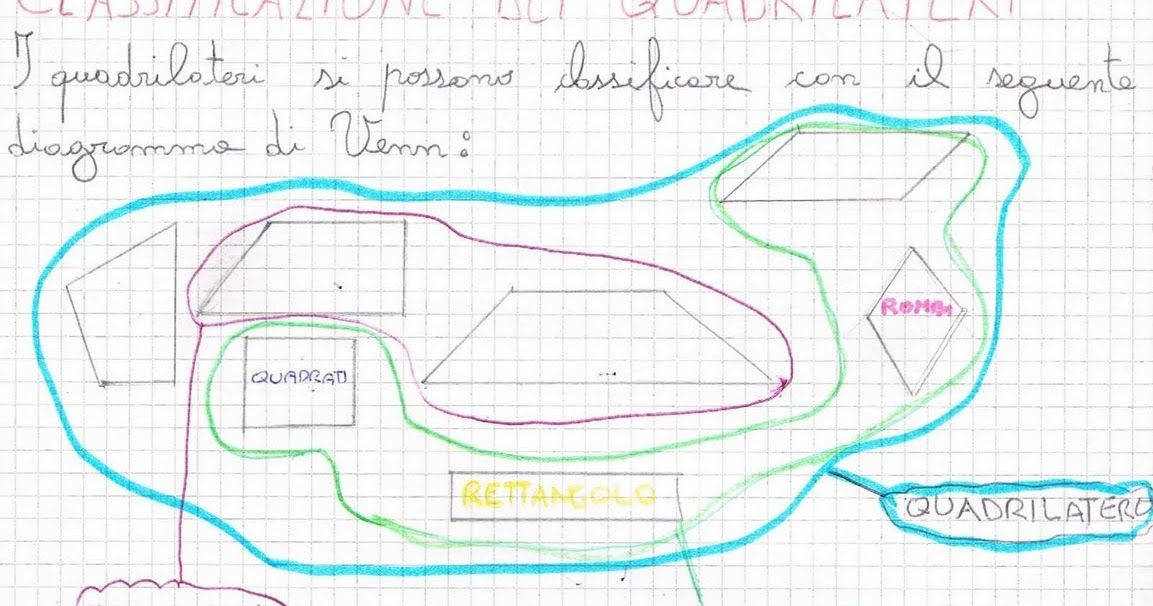 CLASSIFICAZIONE DEI QUADRILATERI
I quadrilateri si possono classificare con il seguente
diagramma di Venn:
ROMBI
QUADRATI
RETTANGOLO
QUADRILATERO